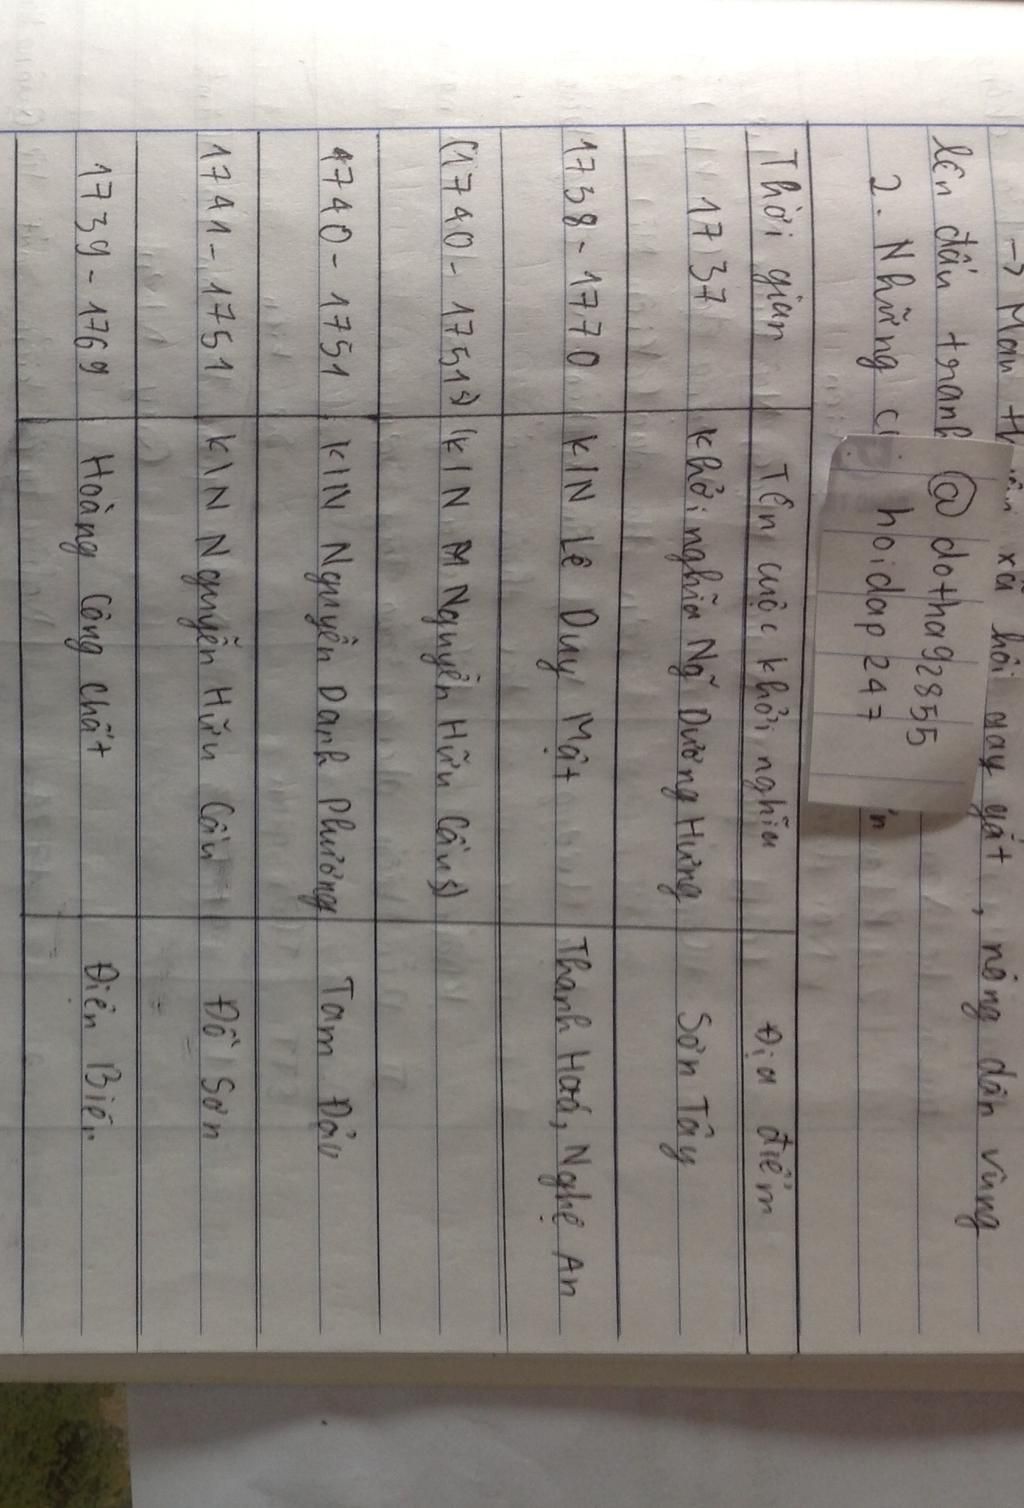 xã hội gay gắt, nông dân vùng
lên đấu tranh
2. Những
@dotha92855
hoidap247
Thời gian Tên cuộc khởi nghĩa Địa điểm
1737 khởi nghĩa Nguyễn Dương Hưng Sơn Tây
1738-1770 K/N Lê Duy Mật Thanh Hoá, Nghệ An
(1740-1751s) (K/N Nguyễn Hữu Cầus)
1740-1751 K/N Nguyễn Danh Phương Tam Đảo
1741-1751 K/N Nguyễn Hữu Cầu Đồ Sơn
1739-1769 Hoàng Công Chất Điện Biên